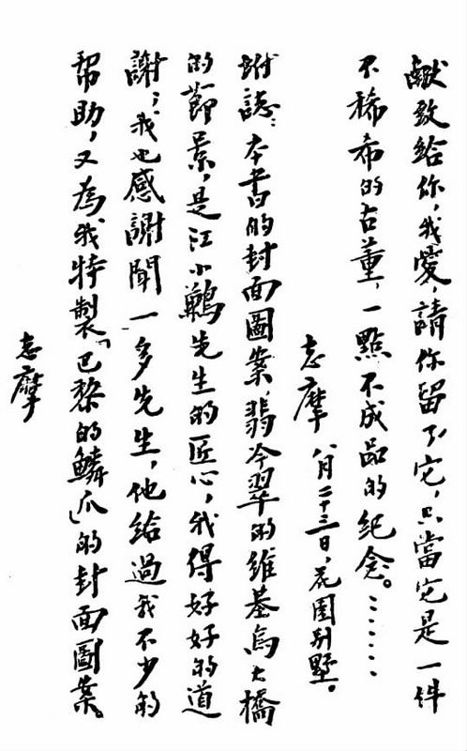 獻致給你，我愛，請你留了它，只當它是一件
不稀希的古董，一點不成品的紀念。……
志摩 八月二十三日，花園別墅。
坿誌：本書的封面圖案，翡冷翠的維基烏大橋
的節景，是江小鶼先生的匠心，我得好好的道
謝；我也感謝聞一多先生，他給過我不少的
幫助，又為我特製「巴黎的鱗爪」的封面圖案。
志摩